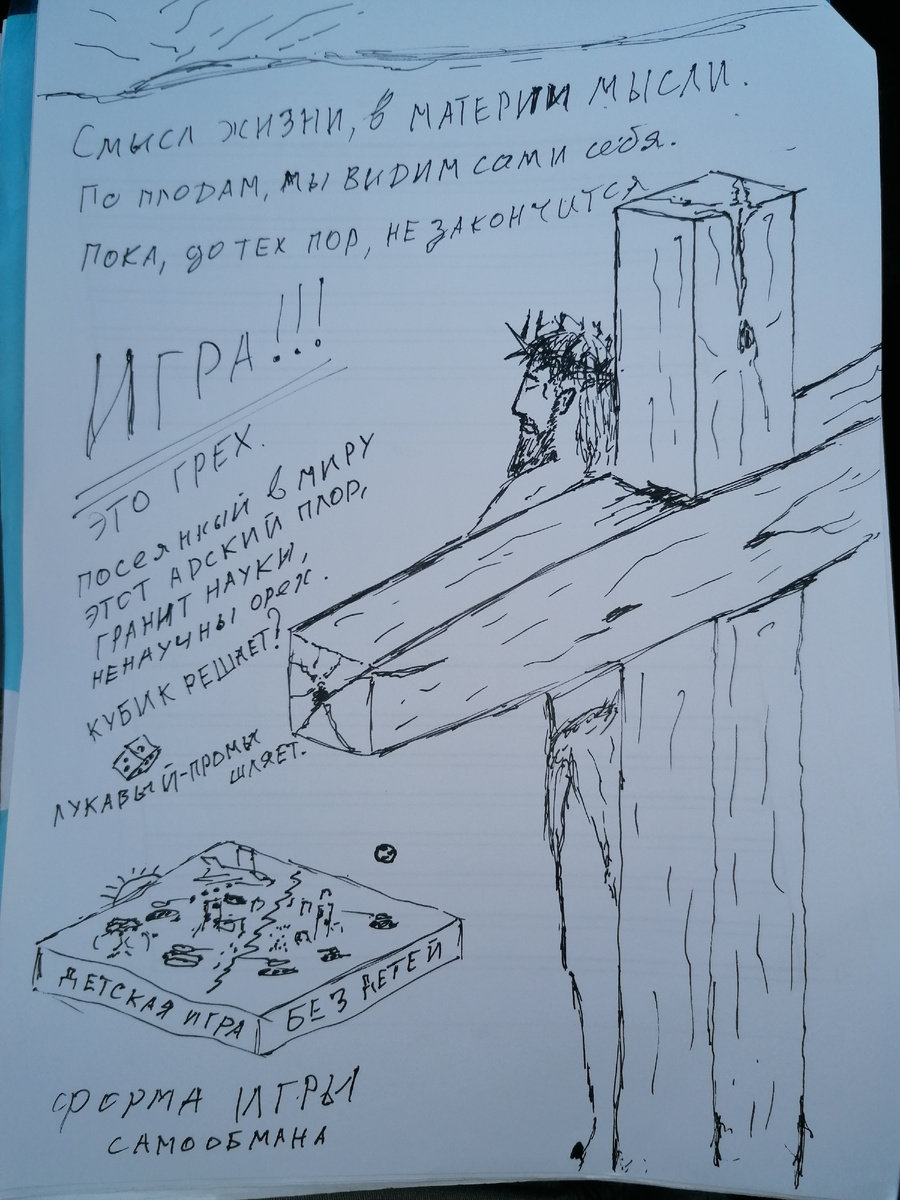 Смысл жизни, в материи мысли.
По плодам, мы видим сами себя.
Пока, до тех пор, не закончится
ИГРА!!!
ЭТО ГРЕХ.
посеянный в миру
этот арский плор,
гранит науки,
ненаучны орех.
кубик решает?
лукавый-промы
шляет.
ДЕТСКАЯ ИГРА
БЕЗ ДЕТЕЙ
ФОРМА ИГРЫ
САМООБМАНА